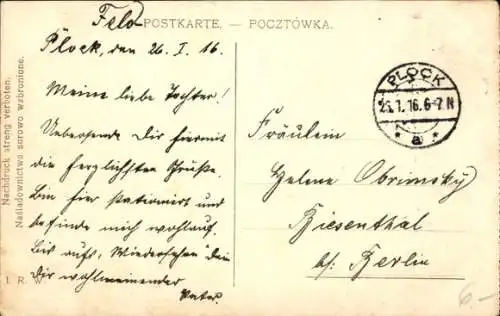 Feld POSTKARTE. — POCZTÓWKA.
Plock, den 26. I. 16.
Meine liebe Tochter!
Uebersende Dir hiermit
die herzlichsten Grüße.
Bin hier stationiert und
befinde mich wohlauf.
Bis aufs "Wiedersehen" Dein
Dir wohlmeinender
Vater.
Fräulein
Helene Obrimsky
Biesenthal
b/. Berlin
PLOCK
26.1.16.6-7 N
* a *
Nachdruck streng verboten.
Naśladownictwo surowo wzbronione.
I. R. W.
6.-